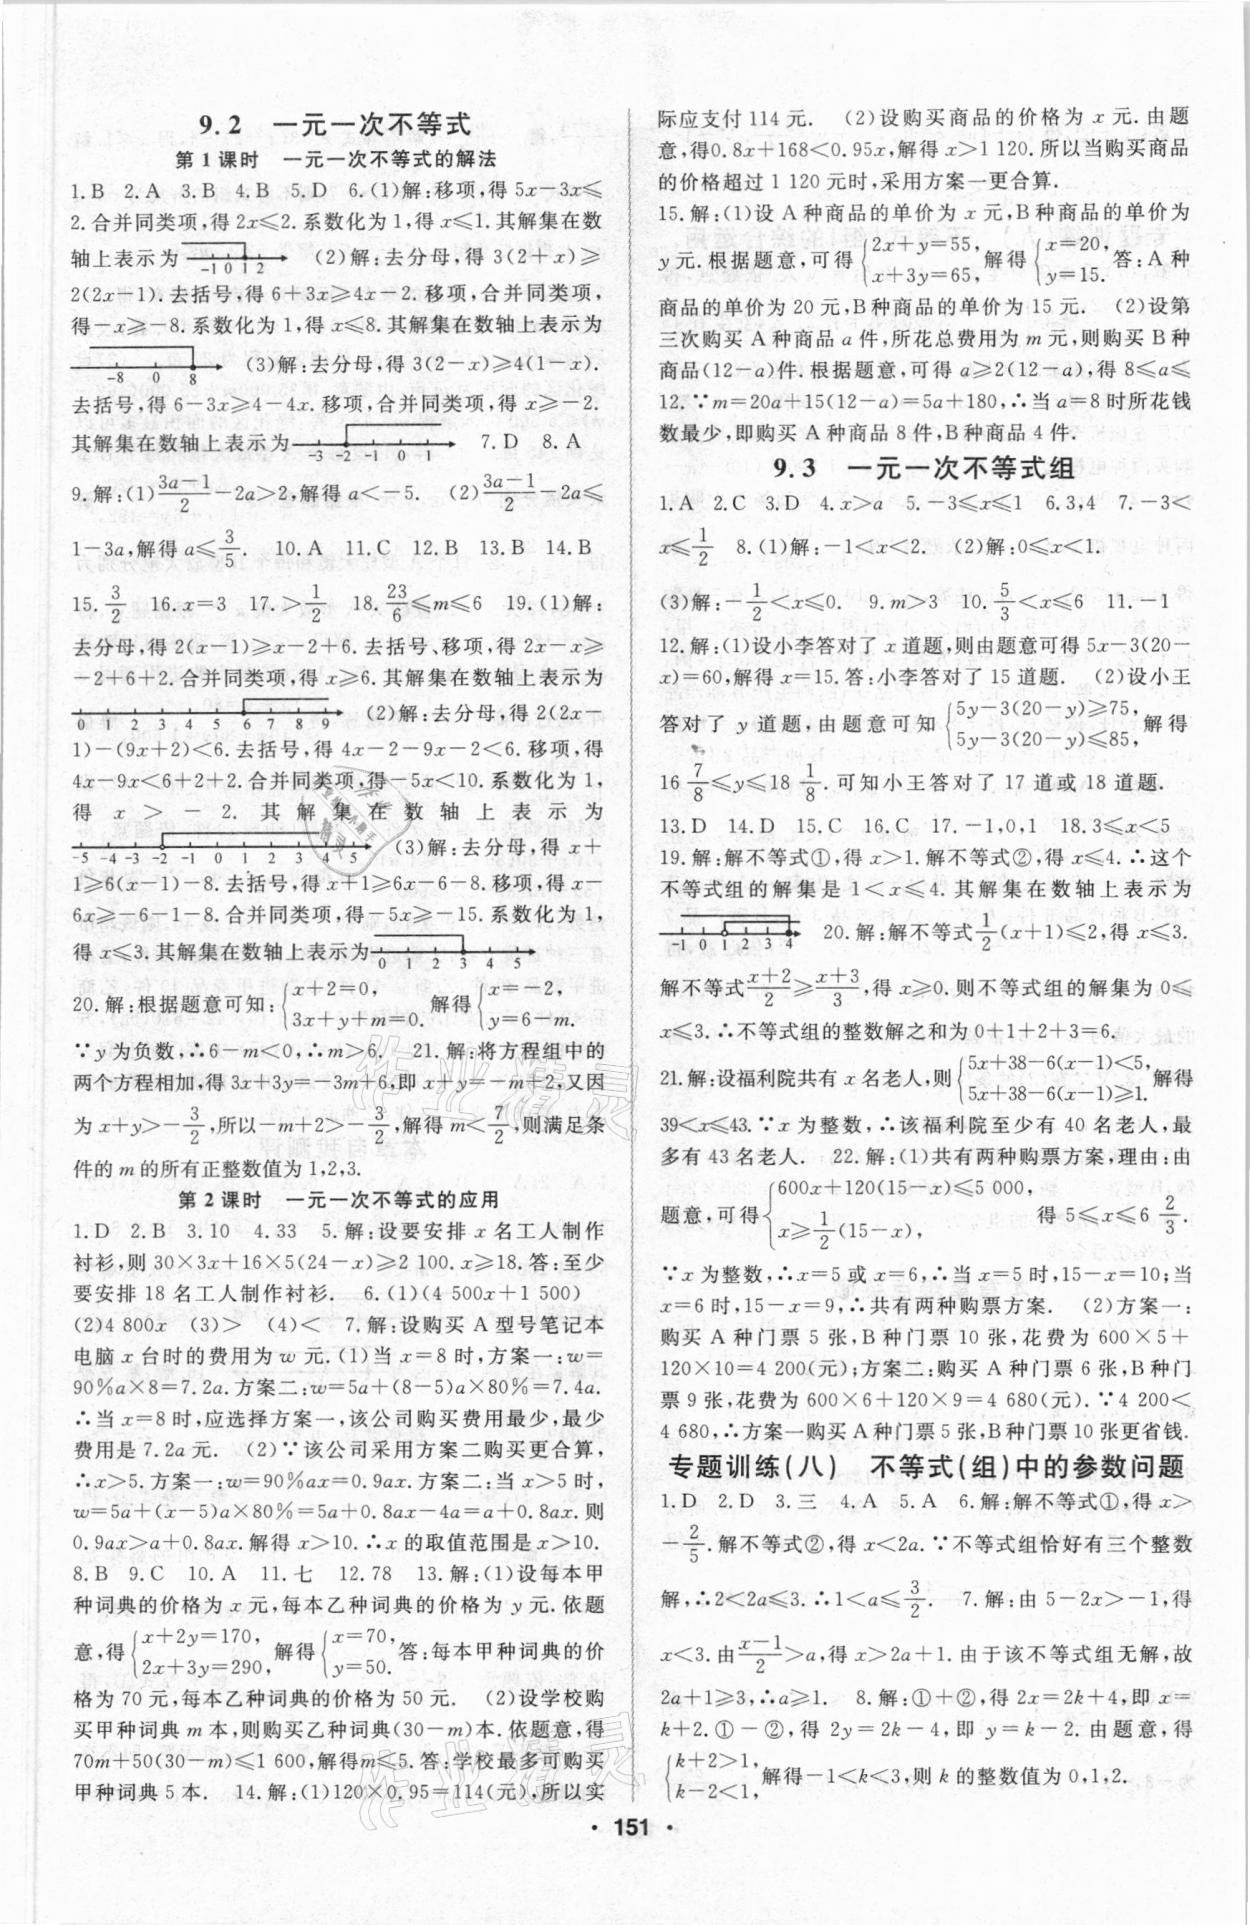 9.2 一元一次不等式
第1课时 一元一次不等式的解法
1.B 2.A 3.B 4.B 5.D 6.(1)解:移项,得 5x-3x≤
2.合并同类项,得 2x≤2.系数化为1,得 x≤1.其解集在数
轴上表示为 -1 0 1 2 (2)解:去分母,得 3(2+x)≥
2(2x-1).去括号,得 6+3x≥4x-2.移项,合并同类项,
得-x≥-8.系数化为1,得 x≤8.其解集在数轴上表示为
-8 0 8 (3)解:去分母,得 3(2-x)≥4(1-x).
去括号,得 6-3x≥4-4x.移项,合并同类项,得 x≥-2.
其解集在数轴上表示为 -3 -2 -1 0 1 7.D 8.A
9.解:(1)(3a-1)/2-2a>2,解得 a<-5. (2)(3a-1)/2-2a≤
1-3a,解得 a≤3/5. 10.A 11.C 12.B 13.B 14.B
15.3/2 16.x=3 17.>1/2 18.23/6≤m≤6 19.(1)解:
去分母,得 2(x-1)≥x-2+6.去括号、移项,得 2x-x≥
-2+6+2.合并同类项,得 x≥6.其解集在数轴上表示为
0 1 2 3 4 5 6 7 8 9 (2)解:去分母,得 2(2x-
1)-(9x+2)<6.去括号,得 4x-2-9x-2<6.移项,得
4x-9x<6+2+2.合并同类项,得-5x<10.系数化为1,
得 x>-2.其解集在数轴上表示为
-5 -4 -3 -2 -1 0 1 2 3 4 5 (3)解:去分母,得 x+
1≥6(x-1)-8.去括号,得 x+1≥6x-6-8.移项,得 x-
6x≥-6-1-8.合并同类项,得-5x≥-15.系数化为1,
得 x≤3.其解集在数轴上表示为 0 1 2 3 4 5
20.解:根据题意可知:{x+2=0, 3x+y+m=0. 解得{x=-2, y=6-m.
∵y 为负数,∴6-m<0,∴m>6. 21.解:将方程组中的
两个方程相加,得 3x+3y=-3m+6,即 x+y=-m+2,又因
为 x+y>-3/2,所以-m+2>-3/2,解得 m<7/2,则满足条
件的 m 的所有正整数值为 1,2,3.
第2课时 一元一次不等式的应用
1.D 2.B 3.10 4.33 5.解:设要安排 x 名工人制作
衬衫,则 30×3x+16×5(24-x)≥2 100.x≥18.答:至少
要安排 18 名工人制作衬衫. 6.(1)(4 500x+1 500)
(2)4 800x (3)> (4)< 7.解:设购买 A 型号笔记本
电脑 x 台时的费用为 w 元.(1)当 x=8 时,方案一:w=
90%a×8=7.2a.方案二:w=5a+(8-5)a×80%=7.4a.
∴当 x=8 时,应选择方案一,该公司购买费用最少,最少
费用是 7.2a 元. (2)∵该公司采用方案二购买更合算,
∴x>5.方案一:w=90%ax=0.9ax.方案二:当 x>5 时,
w=5a+(x-5)a×80%=5a+0.8ax-4a=a+0.8ax.则
0.9ax>a+0.8ax.解得 x>10.∴x 的取值范围是 x>10.
8.B 9.C 10.A 11.七 12.78 13.解:(1)设每本甲
种词典的价格为 x 元,每本乙种词典的价格为 y 元.依题
意,得{x+2y=170, 2x+3y=290, 解得{x=70, y=50. 答:每本甲种词典的价
格为 70 元,每本乙种词典的价格为 50 元. (2)设学校购
买甲种词典 m 本,则购买乙种词典(30-m)本.依题意,得
70m+50(30-m)≤1 600,解得m≤5.答:学校最多可购买
甲种词典 5 本. 14.解:(1)120×0.95=114(元),所以实
际应支付 114 元. (2)设购买商品的价格为 x 元.由题
意,得0.8x+168<0.95x,解得 x>1 120.所以当购买商品
的价格超过 1 120 元时,采用方案一更合算.
15.解:(1)设 A 种商品的单价为 x 元,B 种商品的单价为
y 元.根据题意,可得{2x+y=55, x+3y=65, 解得{x=20, y=15. 答:A 种
商品的单价为 20 元,B种商品的单价为 15 元. (2)设第
三次购买 A 种商品 a 件,所花总费用为 m 元,则购买 B 种
商品(12-a)件.根据题意,可得 a≥2(12-a),得 8≤a≤
12.∵m=20a+15(12-a)=5a+180,∴当 a=8 时所花钱
数最少,即购买 A 种商品 8 件,B种商品 4 件.
9.3 一元一次不等式组
1.A 2.C 3.D 4.x>a 5.-3≤x≤1 6.3,4 7.-3<
x≤1/2 8.(1)解:-1<x<2. (2)解:0≤x<1.
(3)解:-1/2<x≤0. 9.m>3 10.5/3<x≤6 11.-1
12.解:(1)设小李答对了 x 道题,则由题意可得 5x-3(20-
x)=60,解得 x=15.答:小李答对了 15 道题. (2)设小王
答对了 y 道题,由题意可知{5y-3(20-y)≥75, 5y-3(20-y)≤85, 解得
16 7/8≤y≤18 1/8.可知小王答对了 17 道或 18 道题.
13.D 14.D 15.C 16.C 17.-1,0,1 18.3≤x<5
19.解:解不等式①,得 x>1.解不等式②,得 x≤4.∴这个
不等式组的解集是 1<x≤4.其解集在数轴上表示为
-1 0 1 2 3 4 20.解:解不等式1/2(x+1)≤2,得 x≤3.
解不等式(x+2)/2≥(x+3)/3,得 x≥0.则不等式组的解集为 0≤
x≤3.∴不等式组的整数解之和为 0+1+2+3=6.
21.解:设福利院共有 x 名老人,则{5x+38-6(x-1)<5, 5x+38-6(x-1)≥1. 解得
39<x≤43.∵x 为整数,∴该福利院至少有 40 名老人,最
多有 43 名老人. 22.解:(1)共有两种购票方案,理由:由
题意,可得{600x+120(15-x)≤5 000, x≥1/2(15-x), 得 5≤x≤6 2/3.
∵x 为整数,∴x=5 或 x=6,∴当 x=5 时,15-x=10;当
x=6时,15-x=9,∴共有两种购票方案. (2)方案一:
购买 A 种门票 5 张,B种门票 10 张,花费为 600×5+
120×10=4 200(元);方案二:购买 A 种门票 6 张,B种门
票 9 张,花费为 600×6+120×9=4 680(元).∵4 200<
4 680,∴方案一购买 A 种门票 5 张,B种门票 10 张更省钱.
专题训练(八) 不等式(组)中的参数问题
1.D 2.D 3.三 4.A 5.A 6.解:解不等式①,得 x>
-2/5.解不等式②,得 x<2a.∵不等式组恰好有三个整数
解,∴2<2a≤3.∴1<a≤3/2. 7.解:由 5-2x>-1,得
x<3.由(x-1)/2>a,得 x>2a+1.由于该不等式组无解,故
2a+1≥3,∴a≥1. 8.解:①+②,得 2x=2k+4,即 x=
k+2.①-②,得 2y=2k-4,即 y=k-2.由题意,得
{k+2>1, k-2<1, 解得-1<k<3,则 k 的整数值为 0,1,2.
· 151 ·
作业精灵
作业精灵